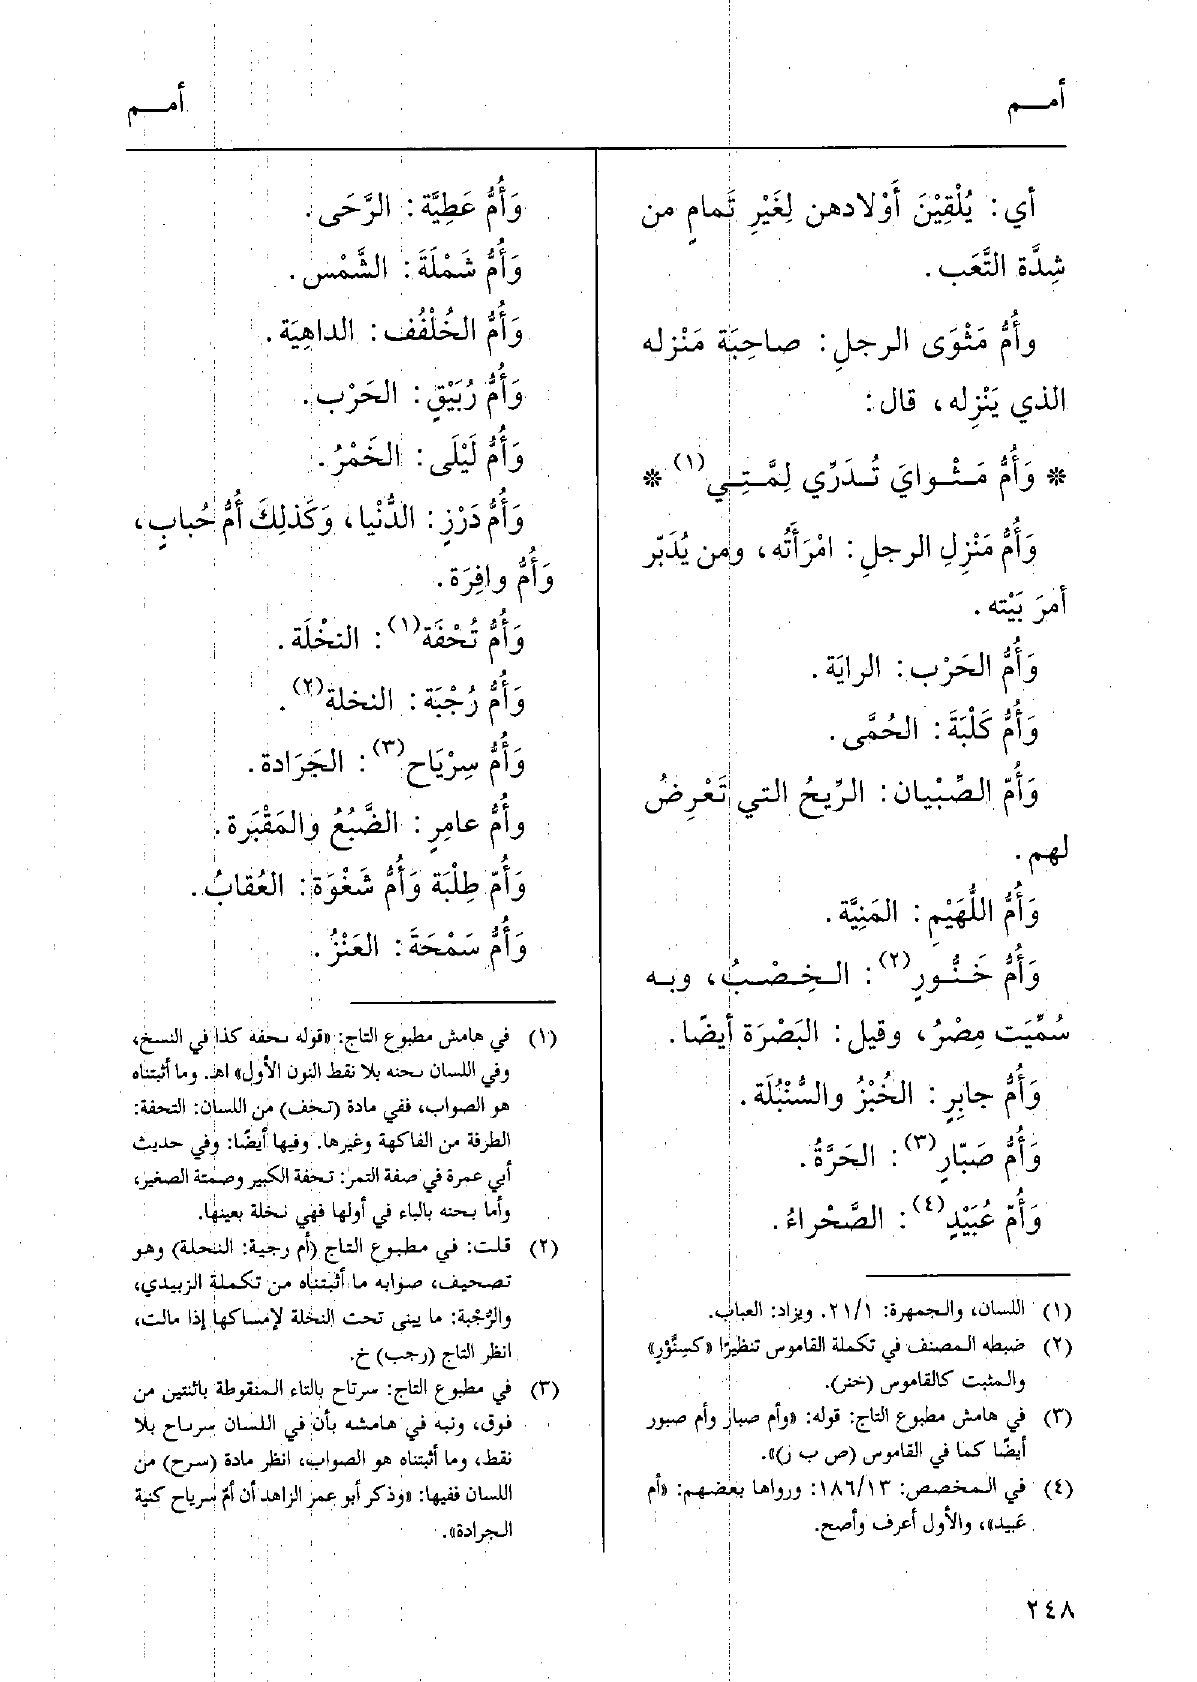 أمـــم
أمـــم
أي: يُلْقِيْنَ أَوْلادهن لِغَيْرِ تَمامٍ من
شِدَّة التَّعَب.
وأُمُّ مَثْوَى الرجلِ: صاحِبَة مَنْزله
الذي يَنْزِله، قال:
* وَأُمُّ مَـثْـوايَ تُـدَرِّي لِمَّـتِـي(١) *
وَأُمُّ مَنْزِلِ الرجلِ: امْرَأَتُه، ومن يُدَبّر
أمرَ بَيْته.
وَأُمُّ الحَرْب: الرايَة.
وَأُمُّ كَلْبَةَ: الحُمَّى.
وَأُمّ الصِّبْيان: الرِّيحُ التي تَعْرِضُ
لهم.
وَأُمُّ اللُّهَيْمِ: المَنِيَّة.
وَأُمُّ خَـنُّـورٍ(٢): الـخِـصْـبُ، وبـه
سُمِّيَت مِصْرُ، وقيل: البَصْرَة أيضًا.
وَأُمُّ جابِرٍ: الخُبْزُ والسُّنْبُلَة.
وَأُمُّ صَبّارٍ(٣): الحَرَّةُ.
وَأُمّ عُبَيْدٍ(٤): الصَّحْراءُ.
(١) اللسان، والجمهرة: ٢١/١. ويزاد: العباب.
(٢) ضبطه المصنف في تكملة القاموس تنظيرًا «كسِنَّوْرٍ»
والمثبت كالقاموس (خنر).
(٣) في هامش مطبوع التاج: قوله: «وأم صبار وأم صبور
أيضًا كما في القاموس (ص ب ر)».
(٤) في المخصص: ١٨٦/١٣: ورواها بعضهم: «أم
عَبيد»، والأول أعرف وأصح.
وَأُمُّ عَطِيَّة: الرَّحَى.
وَأُمُّ شَمْلَةَ: الشَّمْس.
وَأُمُّ الخُلْفُف: الداهِيَة.
وَأُمُّ رُبَيْقٍ: الحَرْب.
وَأُمُّ لَيْلَى: الخَمْرُ.
وَأُمُّ دَرْزٍ: الدُّنْيا، وَكَذلِكَ أُمُّ حُبابٍ،
وَأُمُّ وافِرَة.
وَأُمُّ تُحْفَة(١): النخْلَة.
وَأُمُّ رُجْبَة: النخلة(٢).
وَأُمُّ سِرْيَاح(٣): الجَرَادة.
وأُمُّ عامِرٍ: الضَّبُعُ والمَقْبَرة.
وَأُمّ طِلْبَة وَأُمُّ شَغْوَة: العُقابُ.
وَأُمُّ سَمْحَةَ: العَنْزُ.
(١) في هامش مطبوع التاج: «قوله ىحفه كذا في النسخ،
وفي اللسان ىحنه بلا نقط النون الأول» اهـ. وما أثبتناه
هو الصواب، ففي مادة (تحف) من اللسان: التحفة:
الطرفة من الفاكهة وغيرها. وفيها أيضًا: وفي حديث
أبي عمرة في صفة التمر: تحفة الكبير وصمتة الصغير،
وأما بحنه بالباء في أولها فهي نخلة بعينها.
(٢) قلت: في مطبوع التاج (أم رجية: النحلة) وهو
تصحيف، صوابه ما أثبتناه من تكملة الزبيدي،
والرُّجْبة: ما يبنى تحت النخلة لإمساكها إذا مالت،
انظر التاج (رجب) خ.
(٣) في مطبوع التاج: سرتاح بالتاء المنقوطة باثنتين من
فوق، ونبه في هامشه بأن في اللسان سرىاح بلا
نقط، وما أثبتناه هو الصواب، انظر مادة (سرح) من
اللسان ففيها: «وذكر أبو عمر الزاهد أن أمّ سرياح كنية
الجرادة».
٢٤٨